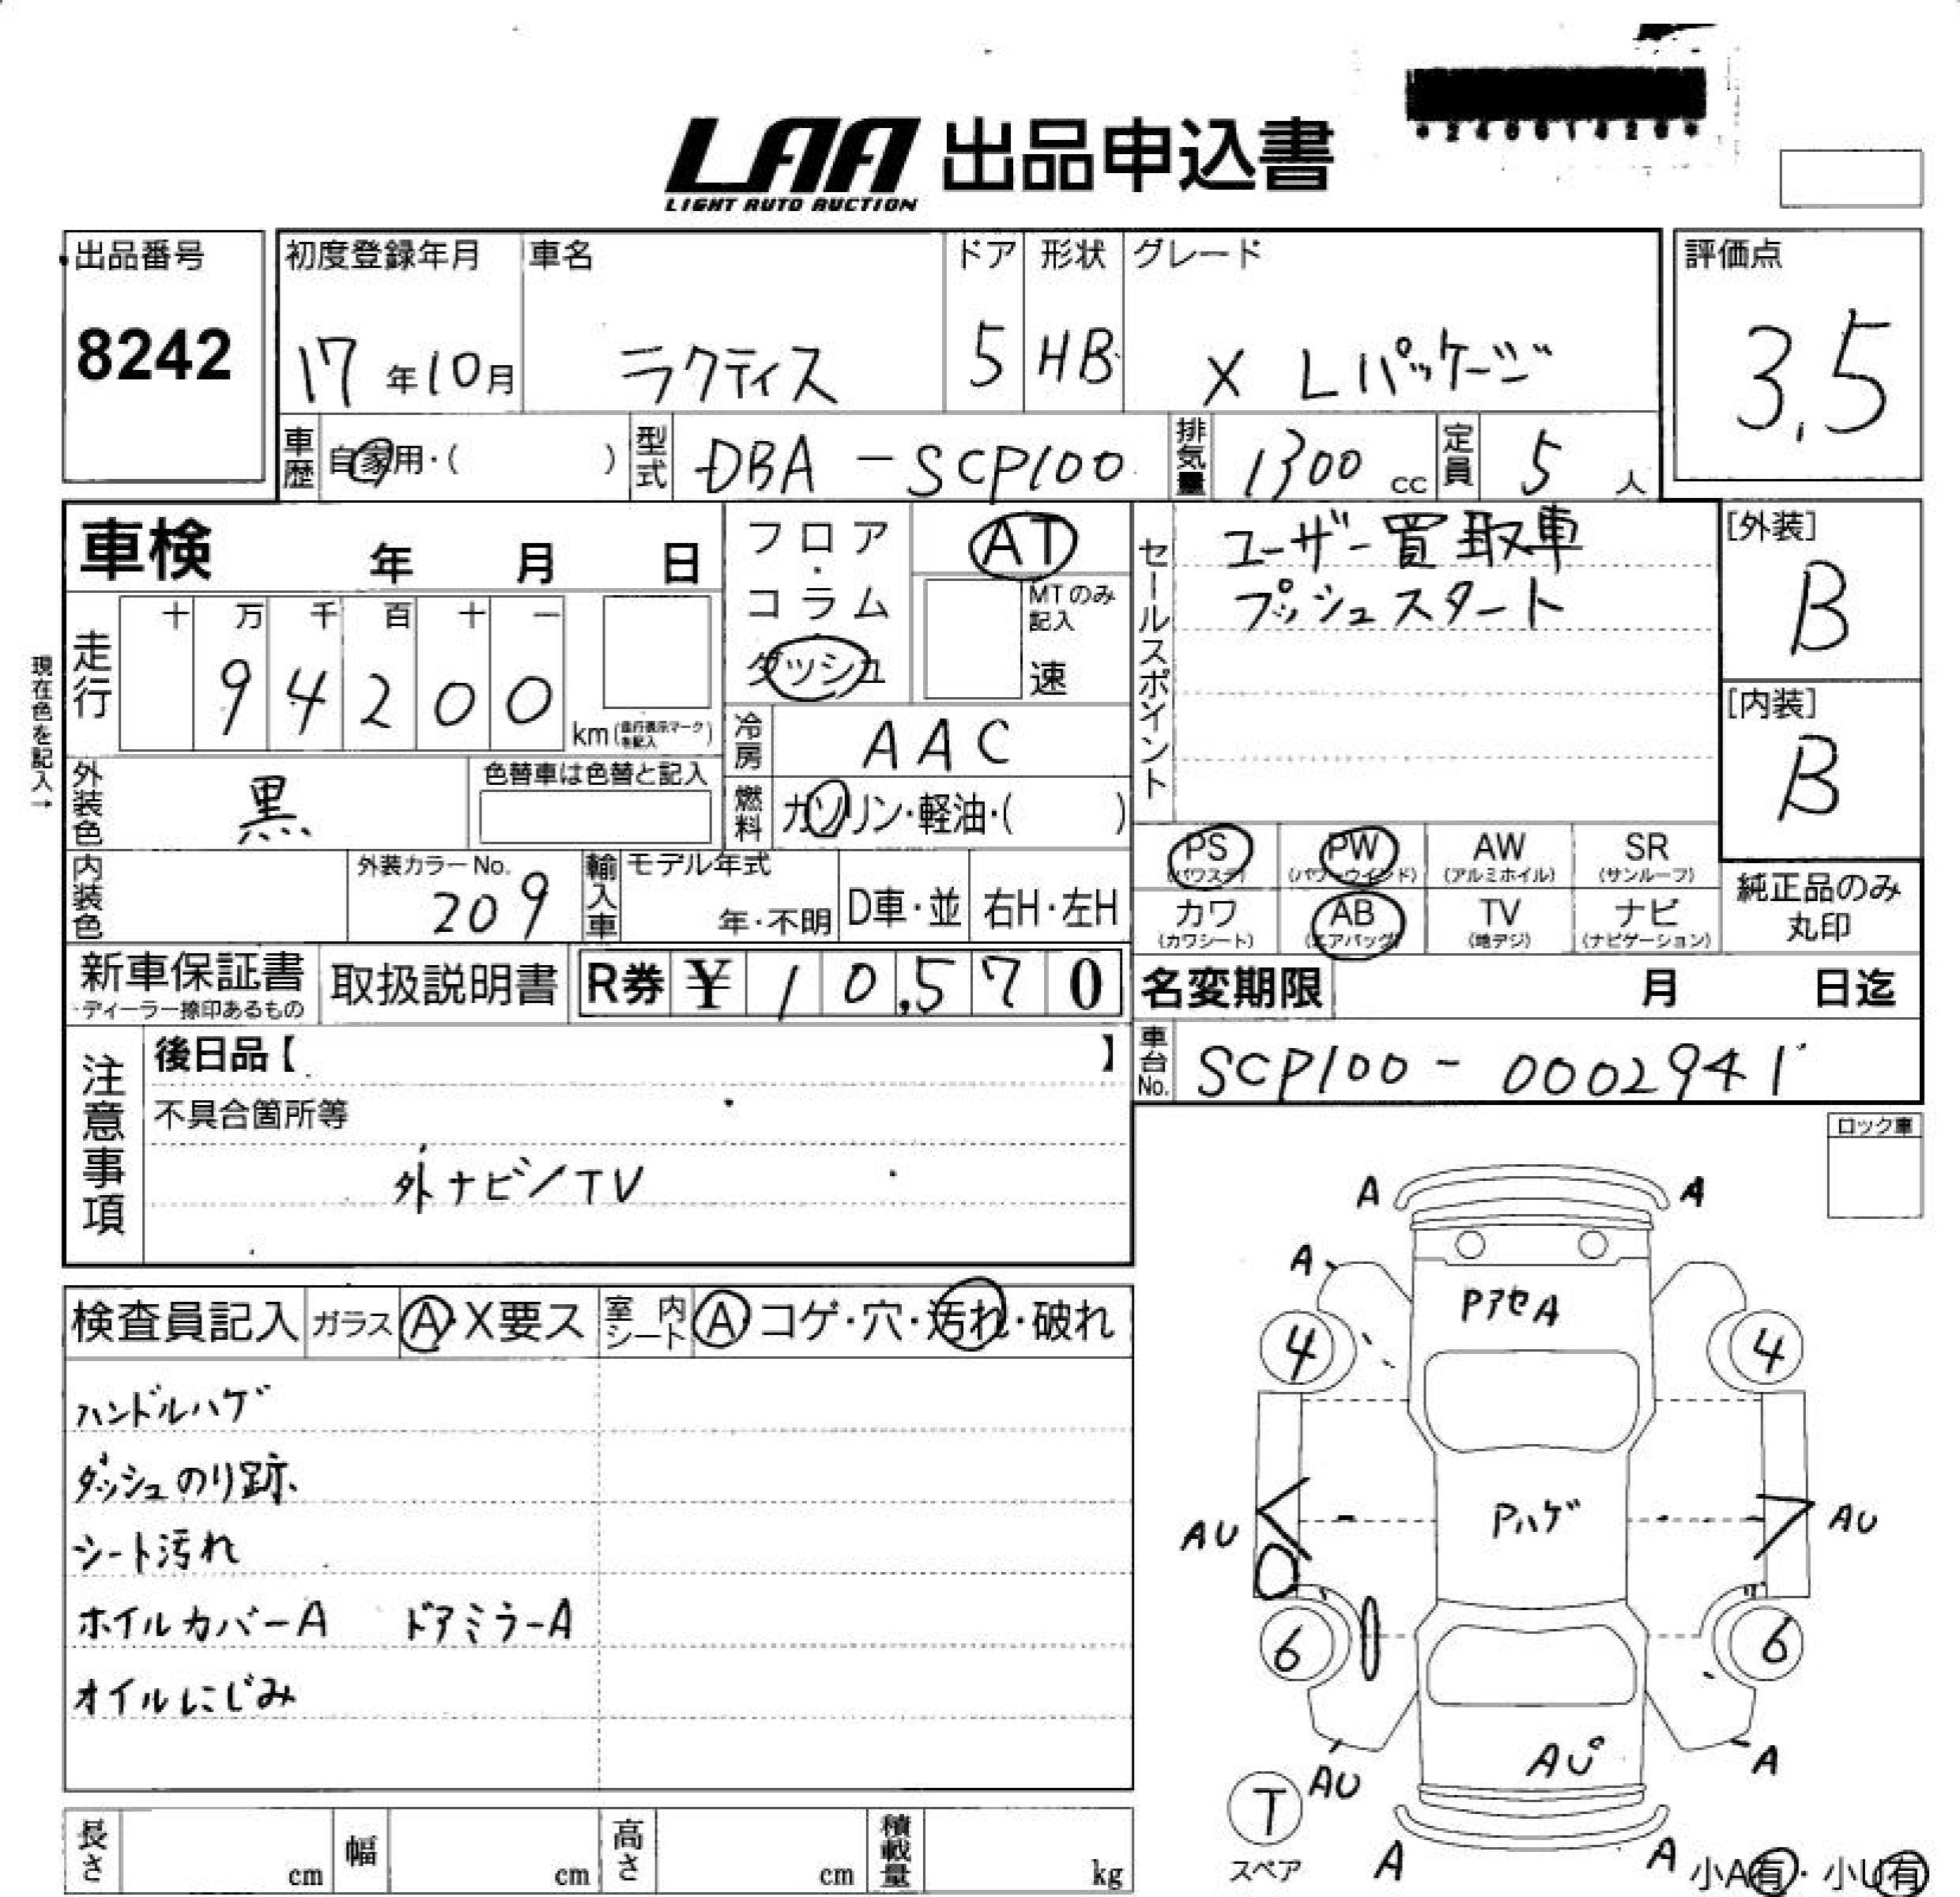 LAA 出品申込書
LIGHT AUTO AUCTION
出品番号
8242
初度登録年月
17年10月
車名
ラクティス
ドア
5
形状
HB
グレード
X Lパッケージ
評価点
3.5
車歴
自家用・( )
型式
DBA-SCP100
排気量
1300 cc
定員
5 人
車検 年 月 日
フロア・コラム・ダッシュ
AT
MTのみ記入
速
セールスポイント
ユーザー買取車
プッシュスタート
[外装]
B
[内装]
B
現在色を記入→
走行
十 万 千 百 十 一
9 4 2 0 0
km(走行表示マークを記入)
冷房
AAC
外装色
黒
色替車は色替と記入
燃料
ガソリン・軽油・( )
PS
(パワステ)
PW
(パワーウインド)
AW
(アルミホイル)
SR
(サンルーフ)
内装色
外装カラーNo.
209
輸入車
モデル年式
年・不明
D車・並
右H・左H
カワ
(カワシート)
AB
(エアバッグ)
TV
(地デジ)
ナビ
(ナビゲーション)
純正品のみ
丸印
新車保証書
・ディーラー捺印あるもの
取扱説明書
R券 ¥ 10,570
名変期限 月 日迄
車台No.
SCP100-0002941
注意事項
後日品【 】
不具合箇所等
外ナビ/TV
ロック車
検査員記入
ガラス
A・X要ス
室内シート
A コゲ・穴・汚れ・破れ
ハンドルハゲ
ダッシュのり跡
シート汚れ
ホイルカバーA ドアミラーA
オイルにじみ
A A
A
PアセA
4 4
Pハゲ
AU AU
6 6
AU
AU
A
T
スペア
A A
小A有・小U有
長さ cm
幅 cm
高さ cm
積載量 kg